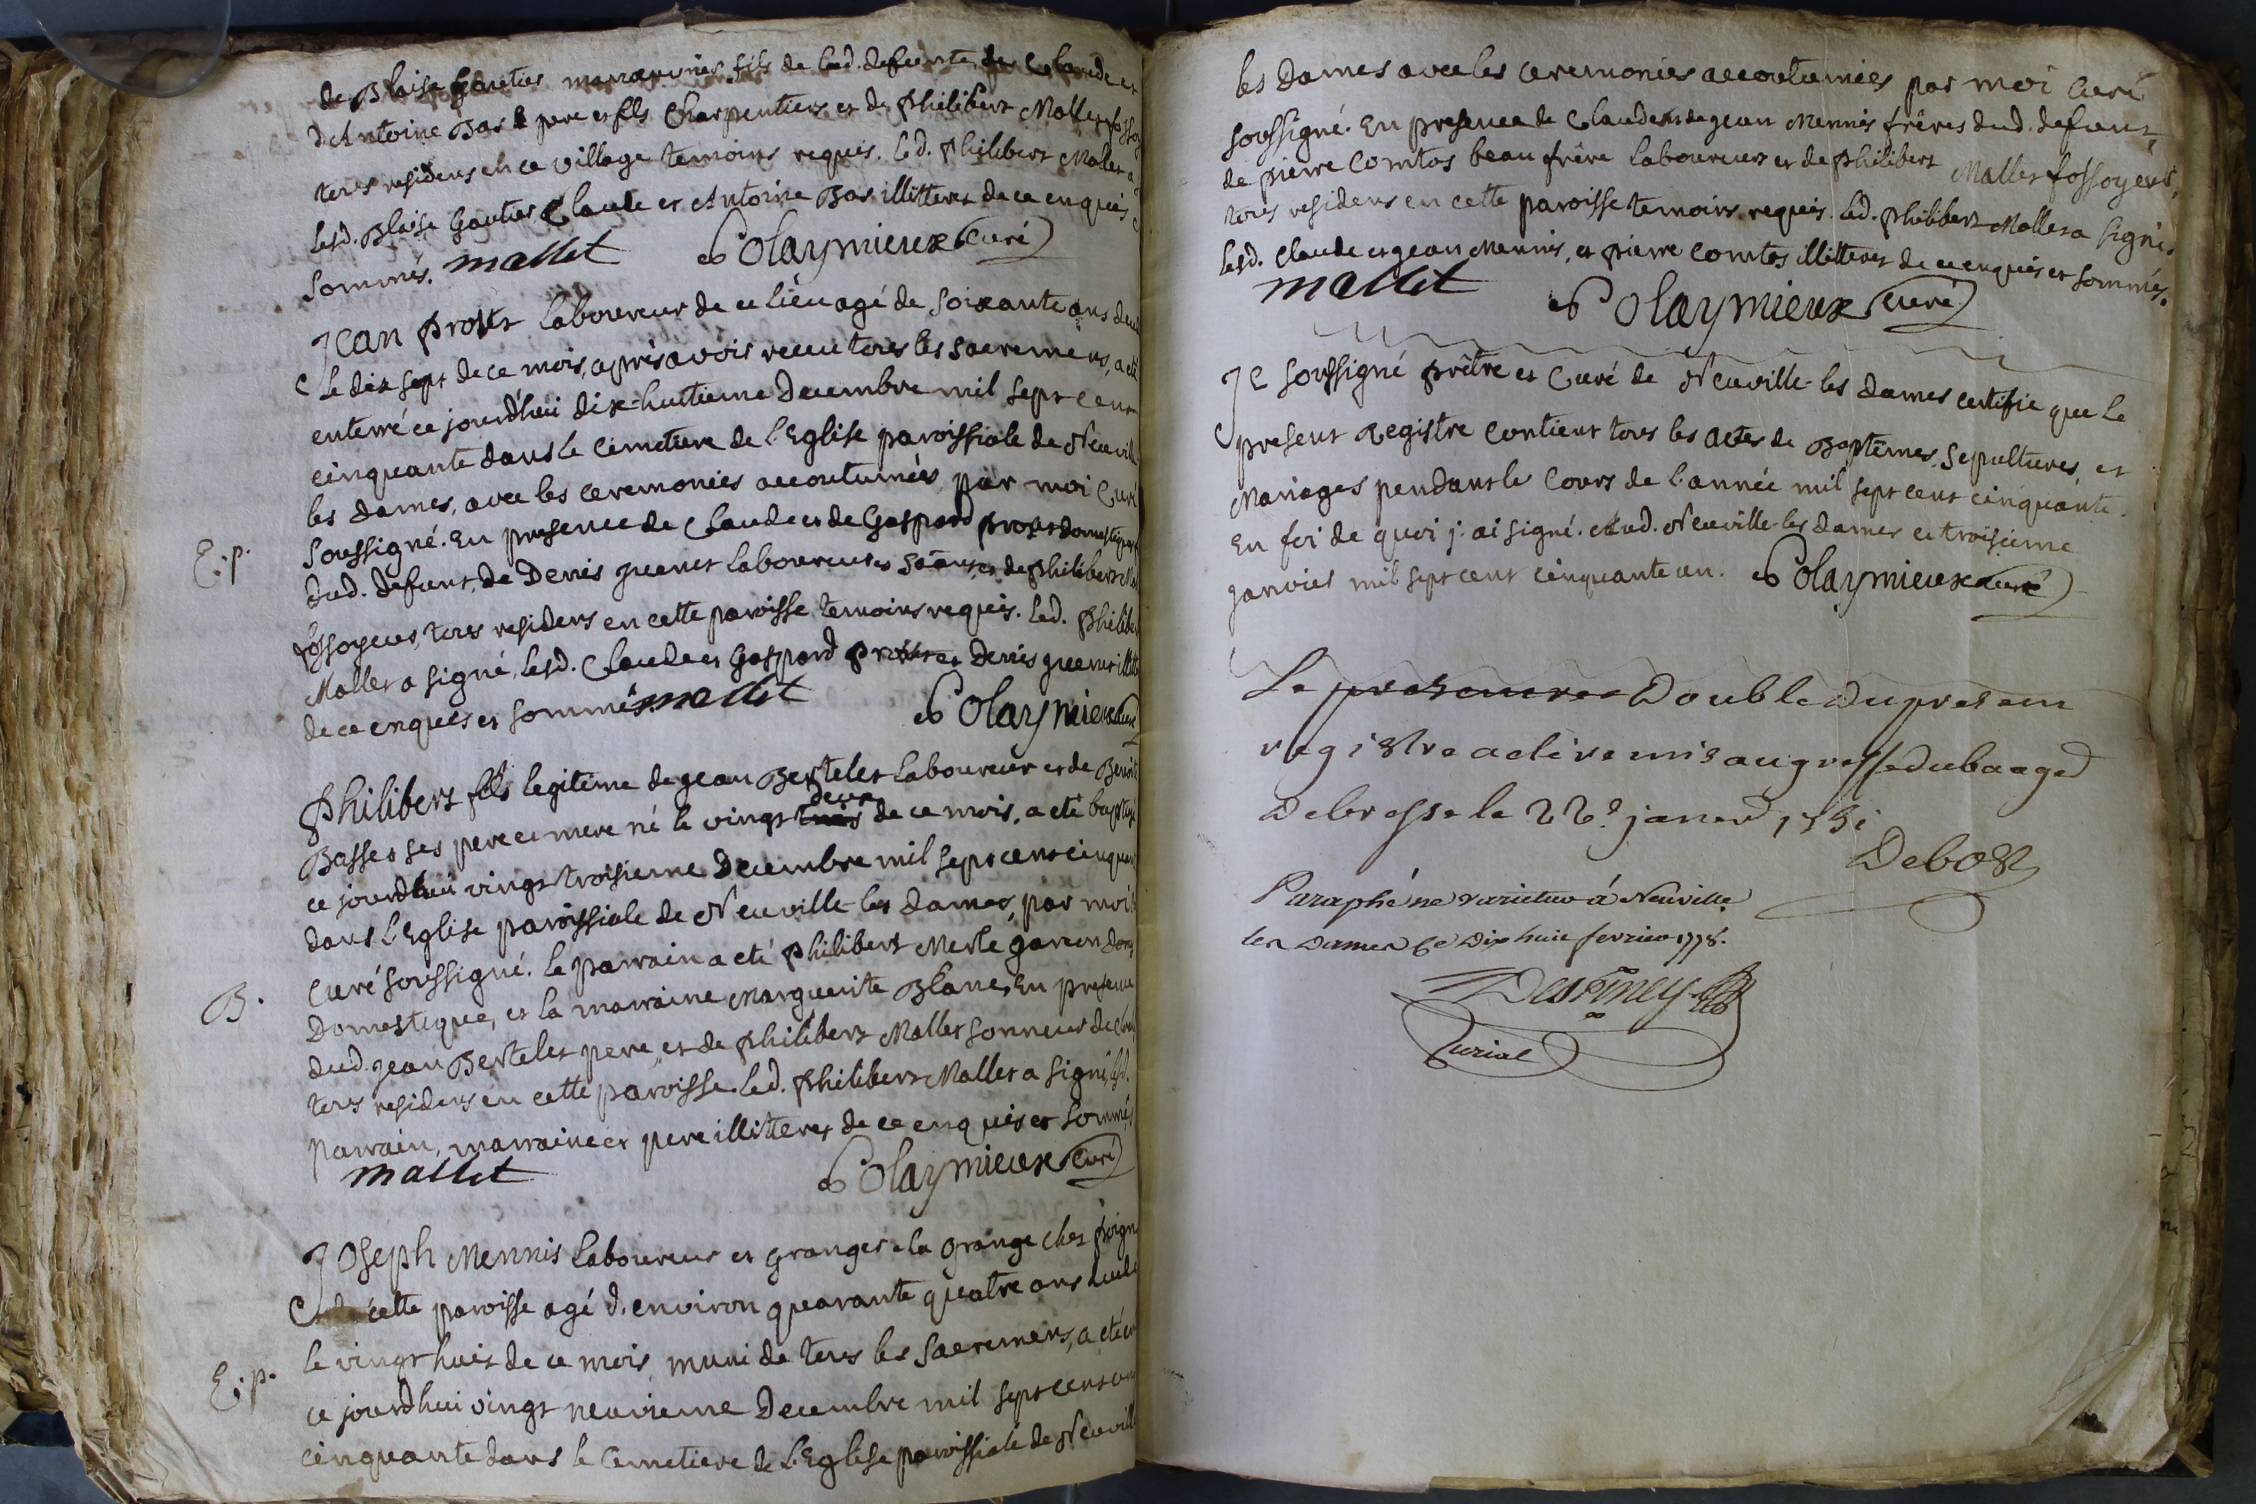 de Blaise Gautier manœuvrier, fils de lad. defunte, de Claude et
d'Antoine Bas pere et fils Charpentiers et de Philibert Mallet fossoy
tous residens en ce village temoins requis. Led. Philibert Mallet a
Lesd. Blaise Gautier Claude et Antoine Bas illitterez de ce enquis
sommés. mallet Polaymieux Curé
Jean Prost Laboureur de ce lieu agé de soixante ans
le dix sept de ce mois, après avoir receu tous les sacremens, a eté
enterré ce jourdhui dix-huitieme Decembre mil sept cent
cinquante dans le cimetiere de l'Eglise paroissiale de Neuville
les dames, avec les ceremonies accoutumées, par moi Curé
E. p.
soussigné. En presence de Claude et de Gaspard Prost domestiques
dud. defunt, de Denis guenet Laboureur et de Philibert
fossoyeur, tous residens en cette paroisse temoins requis. Led. Philibert
Mallet a signé, lesd. Claude et Gaspard Prost et Denis guenet
de ce enquis et sommés mallet Polaymieux Curé
Philibert fils legitime de jean Bertelet Laboureur et de
Basset ses pere et mere né le vingt trois deux de ce mois, a eté baptisé
ce jourdhui vingt troisieme Decembre mil sept cent cinquante
dans l'Eglise paroissiale de Neuville-les dames, par moi
Curé soussigné. le parrain a eté Philibert Merle garcon
B.
Domestique, et la marraine Marguerite Blanc, En presence
dud. jean Bertelet pere, et de Philibert Mallet sonneur de
tous residens en cette paroisse. Led. Philibert Mallet a signé, lesd.
parrain, marraine et pere illitterez de ce enquis et sommés
mallet Polaymieux Curé
Joseph Mennis Laboureur et granger a la grange chez
cette paroisse agé d'environ quarante quatre ans
le vingt huit de ce mois, muni de tous les sacremens, a eté
E. p.
ce jourdhui vingt neuvieme Decembre mil sept cent
cinquante dans le Cimetiere de l'Eglise paroissiale de Neuville
les dames avec les ceremonies accoutumées par moi Curé
soussigné. En presence de Claude et de jean Mennis frères dud. defunt,
de pierre Comtos beau frère Laboureurs et de Philibert Mallet fossoyeur,
tous residens en cette paroisse temoins requis. Led. Philibert Mallet a signé.
Lesd. Claude et jean Mennis, et pierre Comtos illitterez de ce enquis et sommés.
mallet Polaymieux Curé
Je soussigné prêtre et Curé de Neuville-les dames certifie que le
present Registre contient tous les actes de Baptêmes, Sepultures, et
Mariages pendant le Cours de l'année mil sept cent cinquante.
En foi de quoi j'ai signé. Aud. Neuville-les dames ce troisieme
janvier mil sept cent cinquante un. Polaymieux curé
Le Double du present
registre a été remis au greffe du baage
de bresse le 22e janvr 1751
Debost
Paraphé ne varietur á Neuville
les Dames ce Dix huit fevrier 1778.
Curial